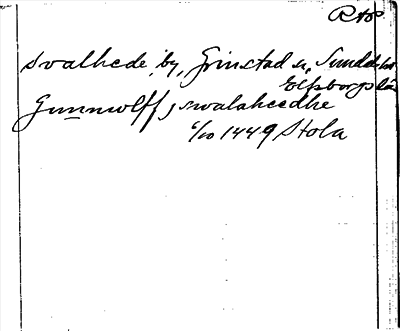 svalhede, by, Grinstad sn, Sundals hd
Elfsborgs län
Gunnwlff j swalaheedhe
6/10 1449 Stola